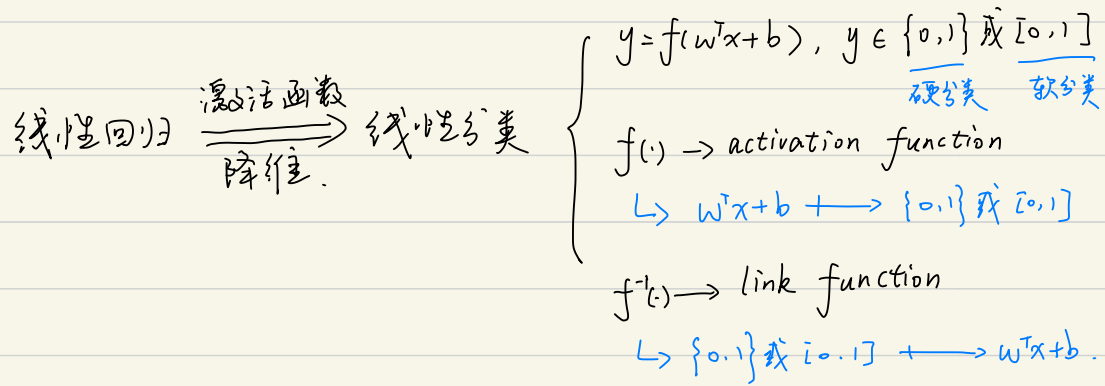 线性回归 激活函数 降维. 线性分类
y=f(wᵀx+b), y∈{0,1}或[0,1]
硬分类 软分类
f(·)→activation function
↳ wᵀx+b ⟼ {0,1}或[0,1]
f⁻¹(·)→ link function
↳ {0.1}或[0.1] ⟼ wᵀx+b.